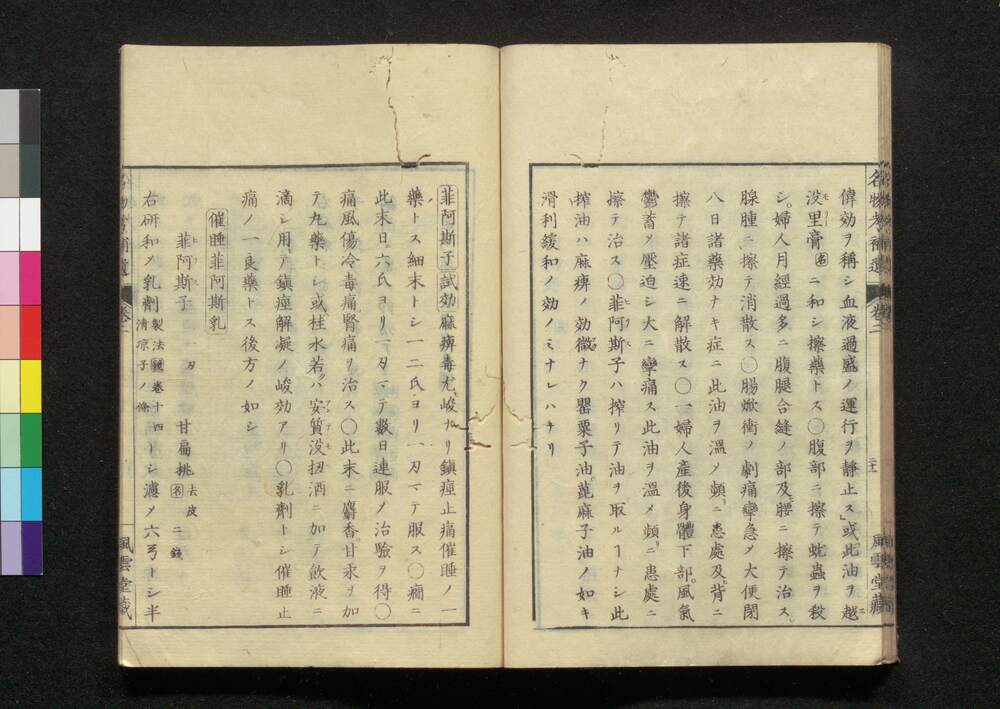 名物考補遺 卷二 風雲堂藏
偉効ヲ稱シ血液過盛ノ運行ヲ靜止ス」或此油ヲ越ニ
没里膏名ニ和シ擦藥トス〇腹部ニ擦テ蚘蟲ヲ殺
シ婦人月經過多ニ腹腿合縫ノ部及腰ニ擦テ治ス
腺腫ニ擦テ消散ス〇腸焮衝ノ劇痛攣急シテ大便閉
八日諸藥効ナキ症ニ此油ヲ温メ頻ニ患處及背ニ
擦テ諸症速ニ解散ス〇一婦人産後身體下部風氣
鬱蓄シテ壓迫シ大ニ攣痛ス此油ヲ温メ頻ニ患處ニ
擦テ治ス〇菲阿斯子ハ搾リテ油ヲ取ルヿナシ此
搾油ハ麻痹ノ効微ナク罌粟子油蓖麻子油ノ如キ
滑利緩和ノ効ノミナレハナリ
菲阿斯子試効麻痹毒尤峻ナリ鎮痙止痛催睡ノ一
藥トス細末トシ一二氏ヨリ一刄マテ服ス〇癇ニ
此末日六氏ヨリ一刄マテ數日連服シテ治驗ヲ得〇
痛風傷冷毒痛腎痛ヲ治ス〇此末ニ麝香甘汞ヲ加
テ丸藥トシ或桂水若ハ安質没扭酒ニ加テ飲液ニ
滴シ用テ鎮痙解凝ノ峻効アリ〇乳劑トシ催睡止
痛ノ一良藥トス後方ノ如シ
催睡菲阿斯乳
菲阿斯子 一刄 甘扁桃去皮名 二錢
右研和シテ乳劑製法卷十四清凉子ノ條トシ濾シテ六弓トシ半
卷二 風雲堂藏